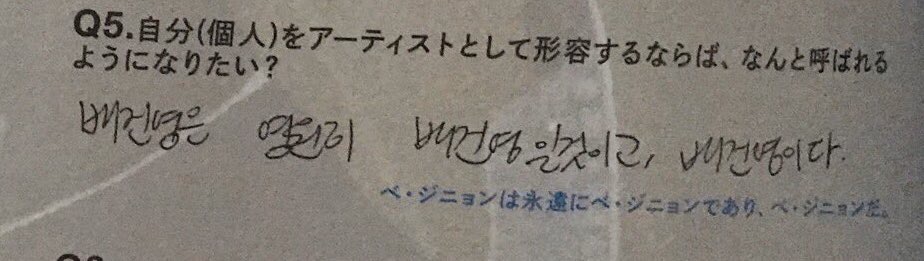 Q5.自分(個人)をアーティストとして形容するならば、なんと呼ばれる
ようになりたい?
배진영은 영원히 배진영일것이고, 배진영이다.
ペ・ジニョンは永遠にペ・ジニョンであり、ペ・ジニョンだ。